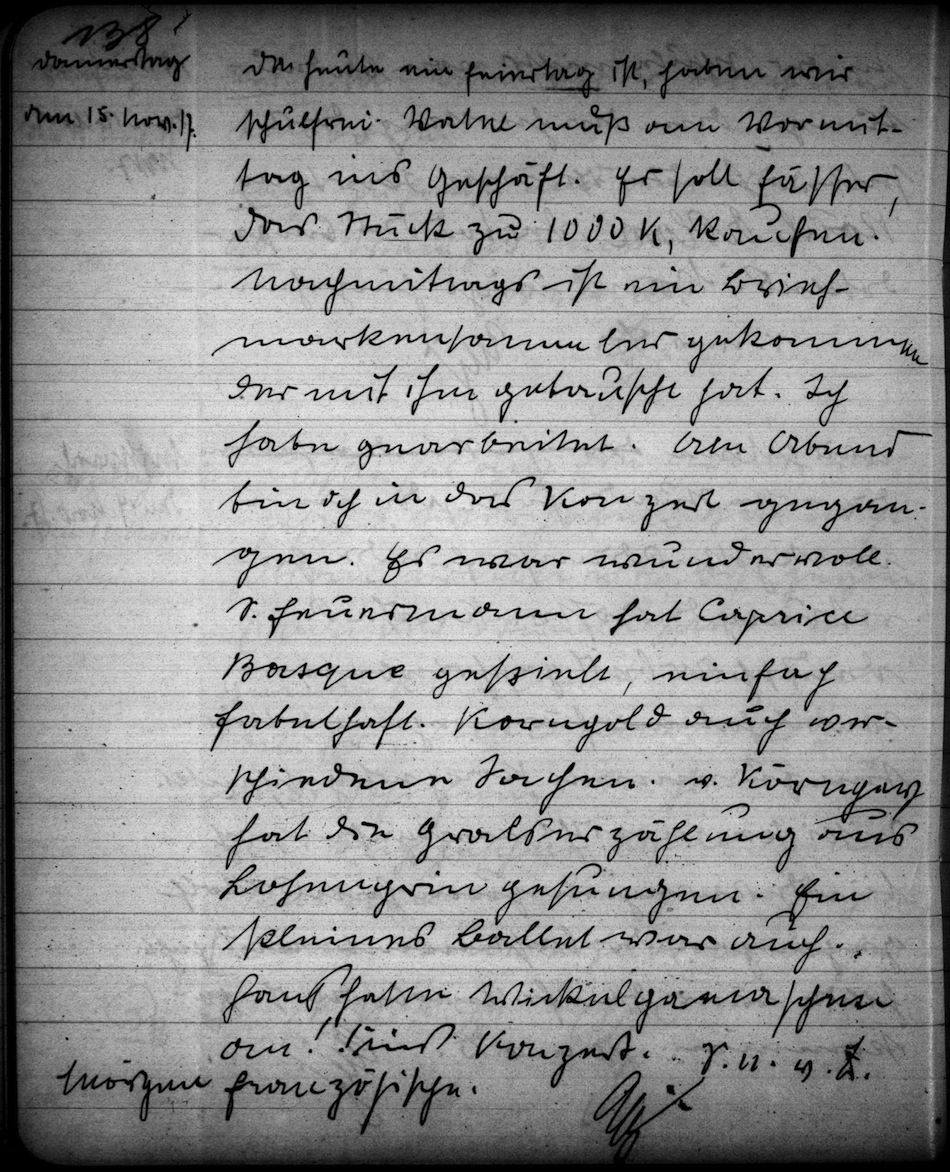 138
Donnerstag
den 15. Nov. 17.
Da heute ein Feiertag ist, haben wir
schulfrei. Vater muß am Vormit-
tag ins Geschäft. Er soll Fässer,
das Stück zu 1000 K, kaufen.
Nachmittags ist ein Brief-
markensammler gekommen
der mit ihm getauscht hat. Ich
habe gearbeitet. Am Abend
bin ich in das Konzert gegan-
gen. Es war wundervoll.
S. Feuermann hat Caprice
Basque gespielt, einfach
fabelhaft. Korngold auch ver-
schiedene Sachen. v. Környey
hat die Gralserzählung aus
Lohengrin gesungen. Ein
kleines Ballet war auch.
Hans hatte Wickelgamaschen
an! Konzert. S. u. v. L.
Morgen Französische.